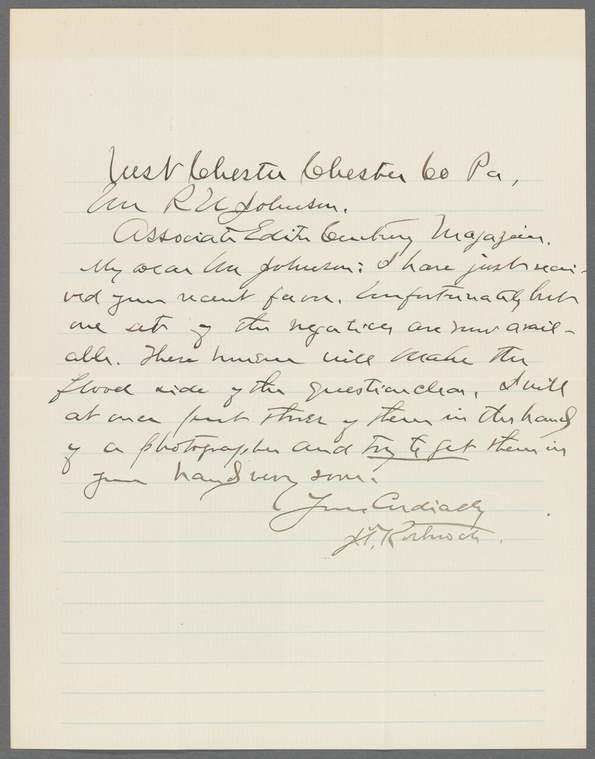 West Chester Chester Co Pa,
Mr R U Johnson.
Associate Editr Century Magazin.
My dear Mr Johnson: I have just recei-
ved your recent favor. Unfortunately but
one set of the negatives are now avail-
able. These however will make the
flood side of the question clear. I will
at once put three of them in the hands
of a photographer and try to get them in
your hands very soon.
Yours Cordially
J.T. Rothrock.